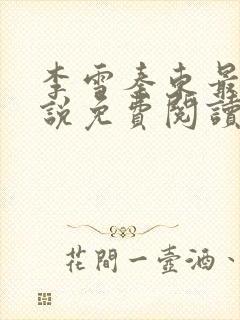 李雪奉東最
說免費閱讀
花間一壺酒、